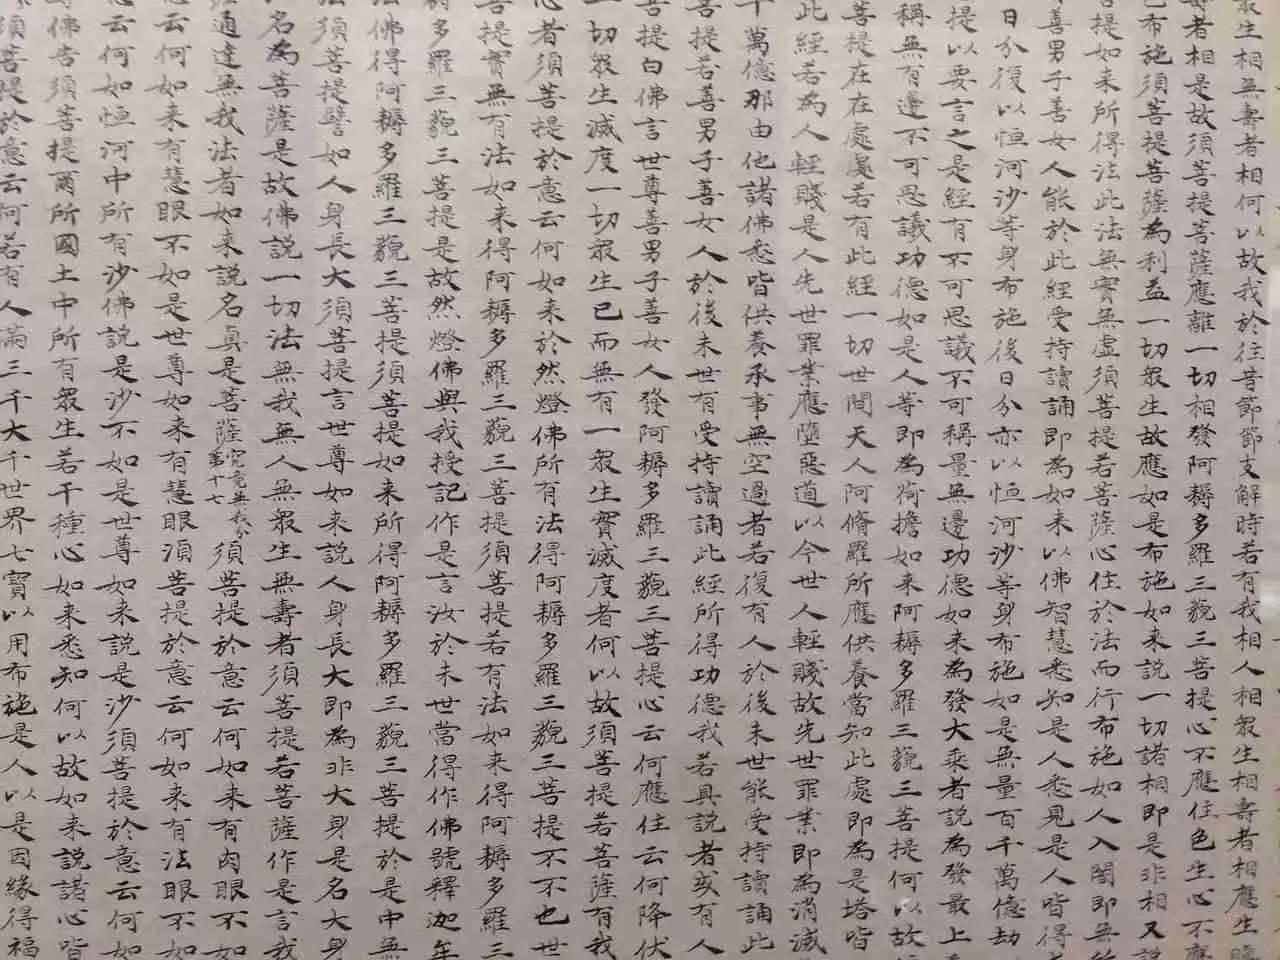 眾生相無壽者相何以故我於往昔節節支解時若有我相人相眾生相壽者相應生瞋
者相是故須菩提菩薩應離一切相發阿耨多羅三藐三菩提心不應住色生心不應
色布施須菩提菩薩為利益一切眾生故應如是布施如来説一切諸相即是非相又説
菩提如来所得法此法無實無虛須菩提若菩薩心住於法而行布施如人入闇即無所
善男子善女人能於此經受持讀誦即為如来以佛智慧悉知是人悉見是人皆得
日分復以恒河沙等身布施後日分亦以恒河沙等身布施如是無量百千萬億劫
提以要言之是經有不可思議不可稱量無邊功德如来為發大乘者説為發最上
稱無有邊不可思議功德如是人等即為荷擔如来阿耨多羅三藐三菩提何以故
菩提在在處處若有此經一切世間天人阿脩羅所應供養當知此處即為是塔皆
此經若為人輕賤是人先世罪業應墮惡道以今世人輕賤故先世罪業即為消滅
千萬億那由他諸佛悉皆供養承事無空過者若復有人於後末世能受持讀誦此
菩提若善男子善女人於後末世有受持讀誦此經所得功德我若具説者或有人
菩提白佛言世尊善男子善女人發阿耨多羅三藐三菩提心云何應住云何降伏
一切眾生滅度一切眾生已而無有一眾生實滅度者何以故須菩提若菩薩有我
心者須菩提於意云何如来於然燈佛所有法得阿耨多羅三藐三菩提不不也世
菩提實無有法如来得阿耨多羅三藐三菩提須菩提若有法如来得阿耨多羅三
耨多羅三藐三菩提是故然燈佛與我授記作是言汝於来世當得作佛號釋迦牟
法佛得阿耨多羅三藐三菩提須菩提如来所得阿耨多羅三藐三菩提於是中無
須菩提譬如人身長大須菩提言世尊如来説人身長大即為非大身是名大身
名為菩薩是故佛説一切法無我無人無眾生無壽者須菩提若菩薩作是言我
通達無我法者如来説名真是菩薩究竟無我分第十七須菩提於意云何如来有肉眼不如
云何如来有慧眼不如是世尊如来有慧眼須菩提於意云何如来有法眼不如
云何如恒河中所有沙佛説是沙不如是世尊如来説是沙須菩提於意云何如
佛告須菩提爾所國土中所有眾生若干種心如来悉知何以故如来説諸心皆
須菩提於意云何若有人滿三千大千世界七寶以用布施是人以是因緣得福